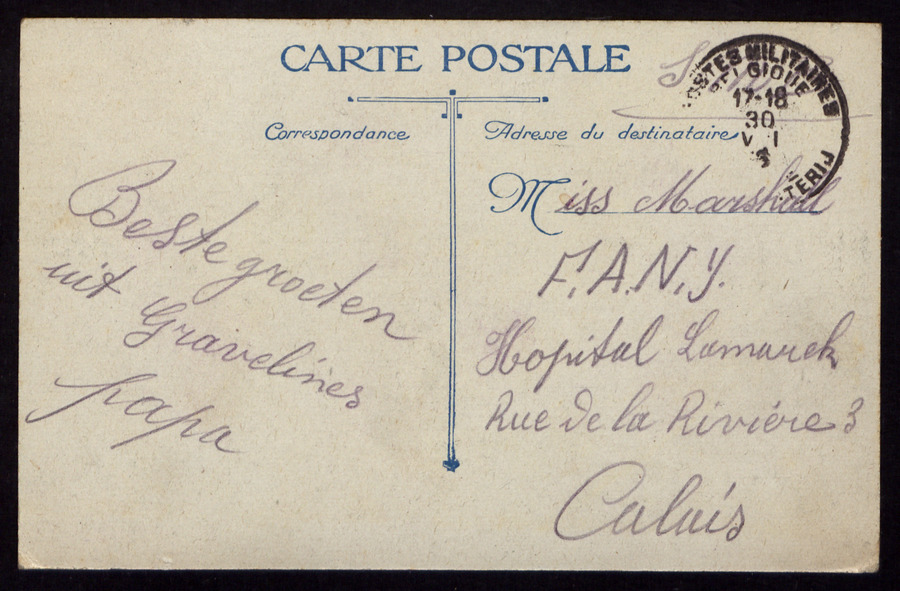 CARTE POSTALE
Correspondance
Adresse du destinataire
POSTES MILITAIRES
BELGIQUE
17-18
30
Beste groeten
uit Gravelines
papa
Miss Marshall
F.A.N.Y.
Hopital Lamarck
Rue de la Rivière 3
Calais